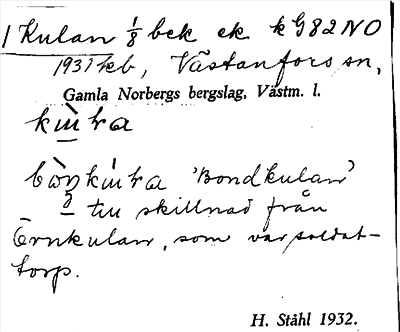 1 Kulan ⅛ bek ek. k G82NO
1931 kb, Västanfors sn,
Gamla Norbergs bergslag, Västm. l.
'Bondkulan'
till skillnad från
Örnkulan, som var soldat-
torp.
H. Ståhl 1932.